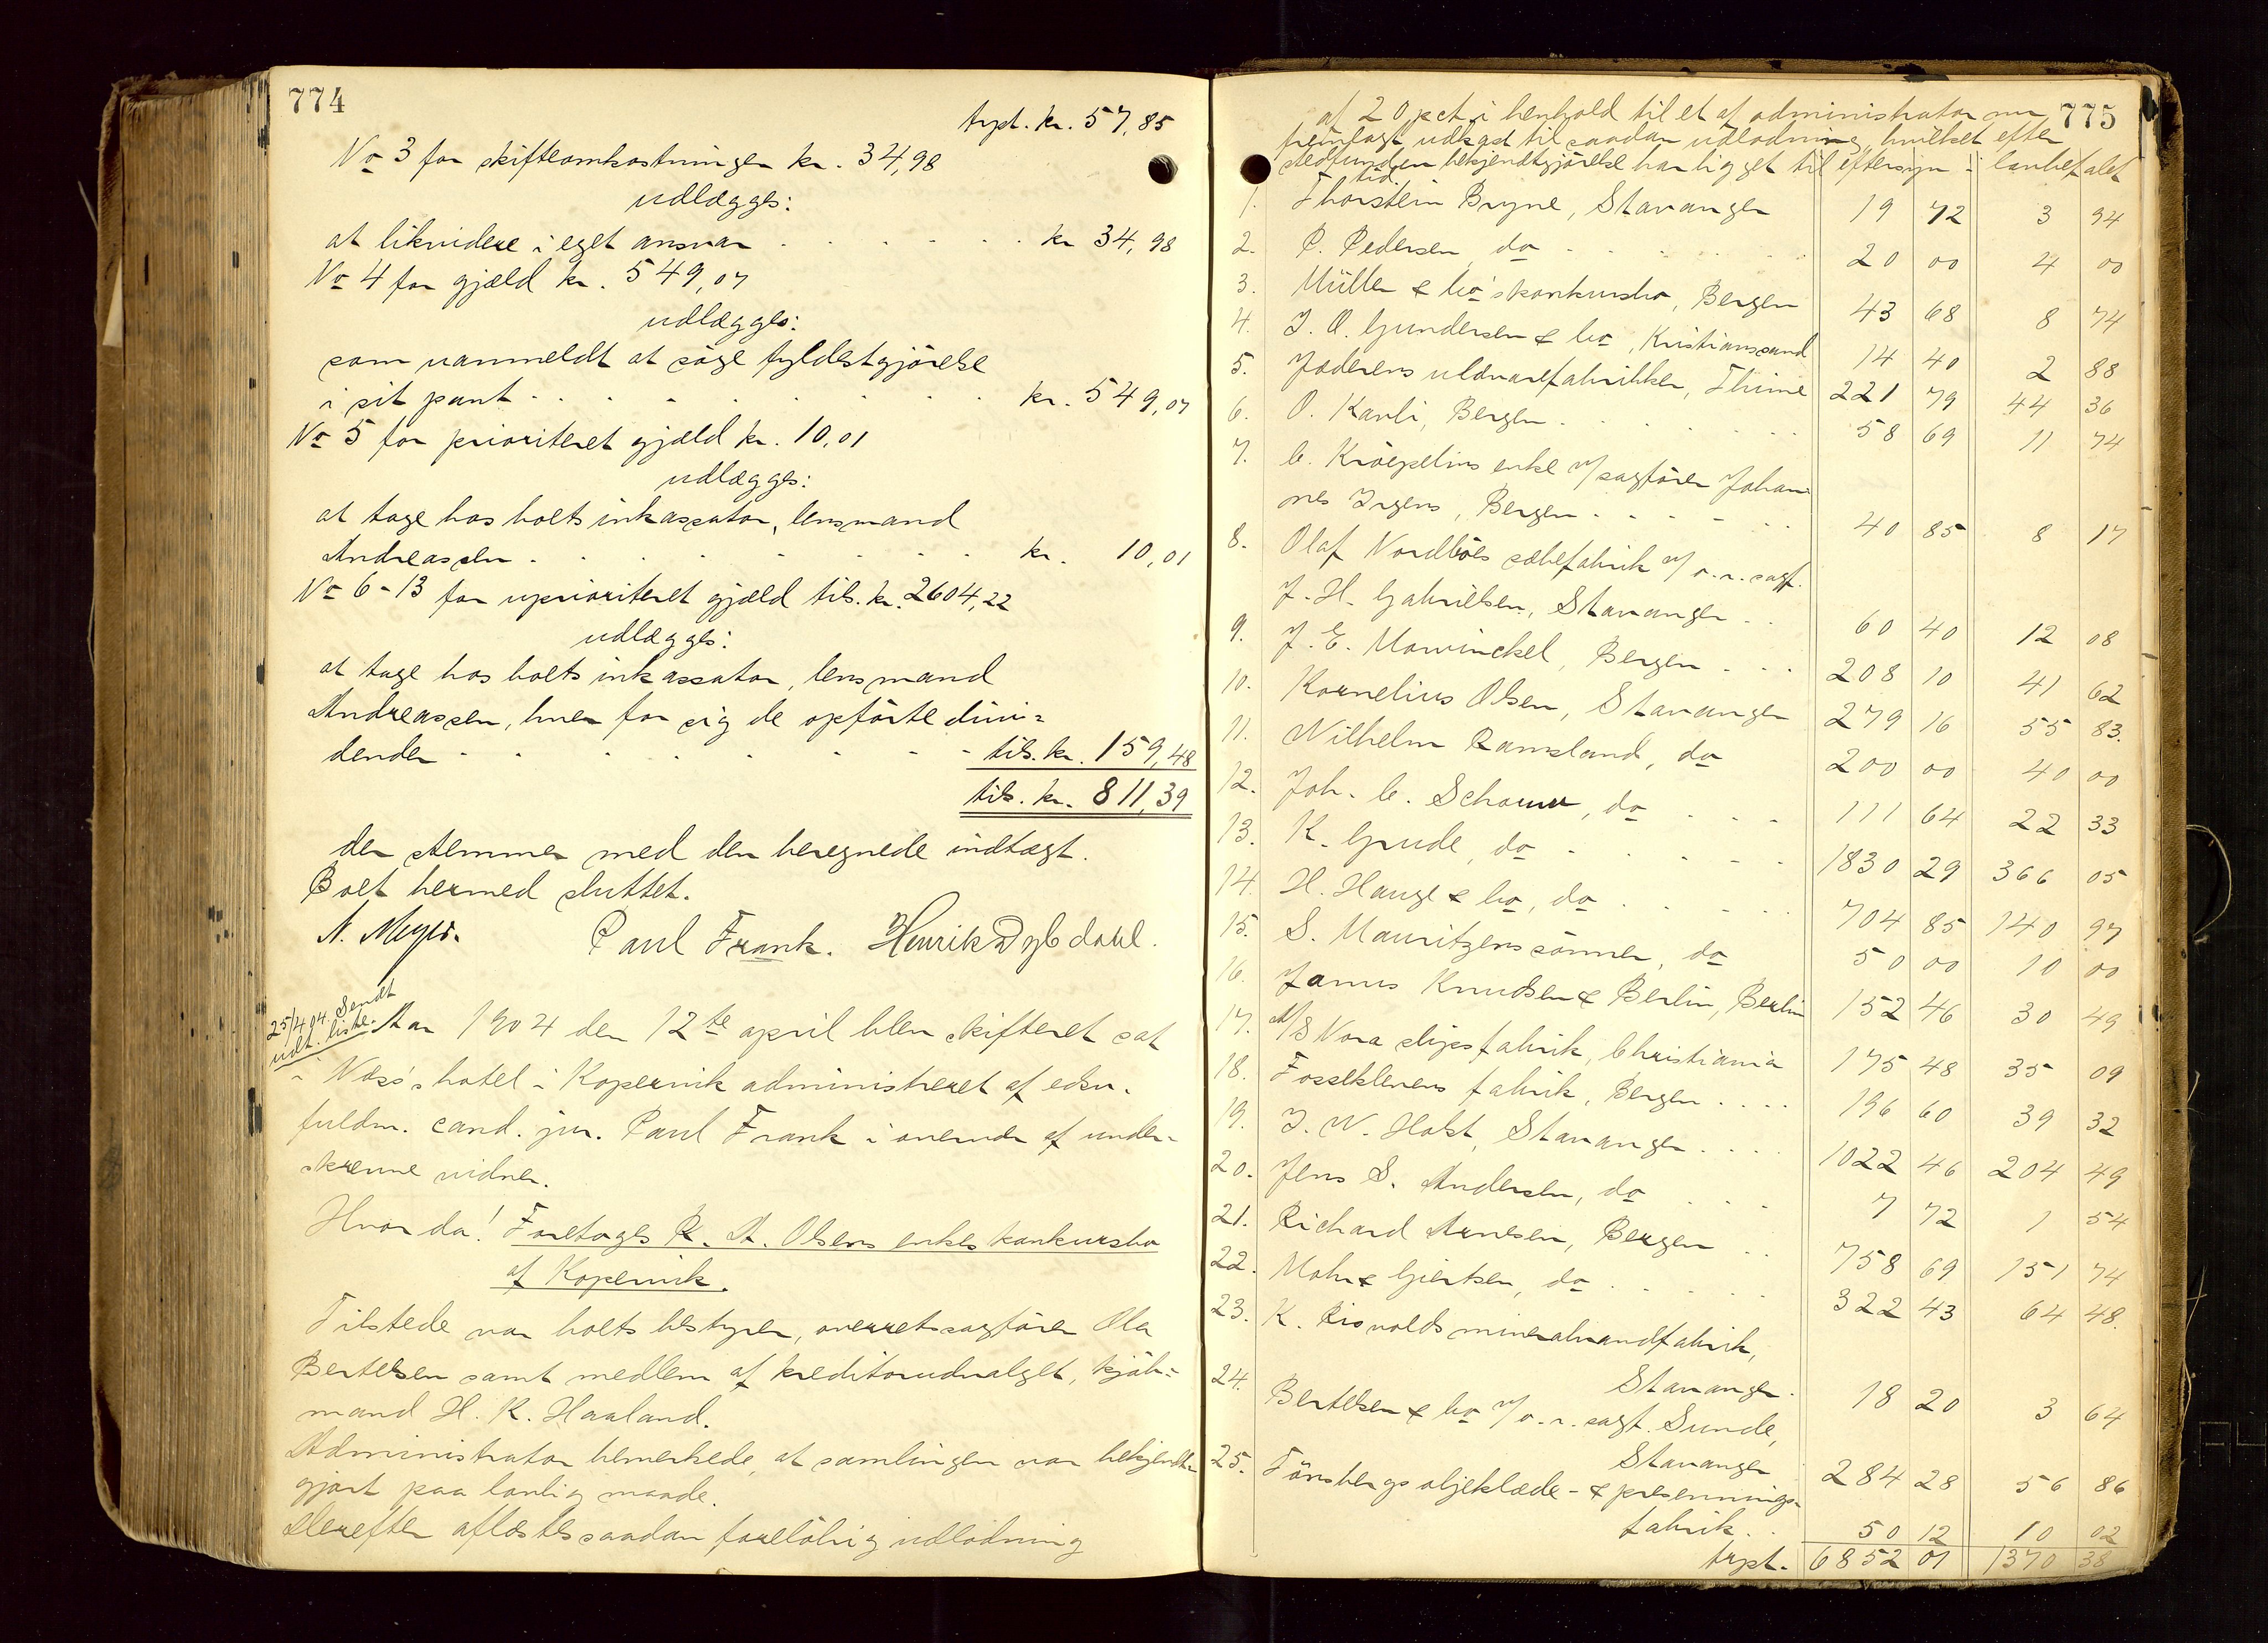 774
trpt. kr. 57,85
No 3 for skifteomkostninger kr. 34,98
udlægges:
at likvidere i eget ansvar . . . . . . kr 34,98
No 4 for gjæld kr. 549,07
udlægges:
som uanmeldt at söge fyldestgjörelse
i sit pant . . . . . . . . kr. 549,07
No 5 for prioriteret gjæld kr. 10,01
udlægges:
at tage hos boets inkassator, lensmand
Andreassen . . . . . . . kr. 10,01
No 6-13 for uprioriteret gjæld tils. kr. 2604,22
udlægges:
at tage hos boets inkassator, lensmand
Andreassen, hver for sig de opförte divi=
dender . . . . . . . - tils. kr. 159,48
tils. kr. 811,39
der stemmer med den beregnede indtægt.
Boet hermed sluttet.
N. Meyer. Paul Frank. Henrik Dybdahl.
25/4 04. Sendt
udl. liste.
Aar 1904 den 12te april blev skifteret sat
i Næss's hotel i Kopervik administreret af edsv.
fuldm. cand. jur. Paul Frank i overvær af under-
skrevne vidner.
Hvor da! Foretoges R. A. Olsens enkes konkursbo
af Kopervik.
Tilstede var boets bestyrer, overretssagförer Ola
Bertelsen samt medlem af kreditorudvalget, kjöb=
mand H. K. Haaland.
Administrator bemerkede, at samlingen var bekjendt-
gjort paa lovlig maade.
Derefter aflæstes saadan foreløbig udlodning
775
af 20 pct. i henhold til et af administrator nu
fremlagt udkast til saadan udlodning, hvilket efter
stedfunden bekjendtgjörelse har ligget til eftersyn i lovbefalet
tid.
1. Thorstein Bryne, Stavanger 19 72 3 94
2. P. Pedersen, do . . . . . 20 00 4 00
3. Müller & Co's konkursbo, Bergen 43 68 8 74
4. J. O. Gundersen & Co, Kristianssand 14 40 2 88
5. Jæderens uldvarefabrikker, Thime 221 79 44 36
6. O. Kavli, Bergen . . . . . . 58 69 11 74
7. C. Kröepelins enke v/ sagförer Johan-
nes Irgens, Bergen . . . . . . 40 85 8 17
8. Olaf Nordbös sæbefabrik v/ o.r. sagf.
J. H. Gabrielsen, Stavanger . . 60 40 12 08
9. J. E. Mowinckel, Bergen . . . 208 10 41 62
10. Kornelius Olsen, Stavanger 279 16 55 83.
11. Vilhelm Ramsland, do 200 00 40 00
12. Joh. C. Schouw, do . . . 111 64 22 33
13. K. Grude, do . . . . . 1830 29 366 05
14. H. Hauge & Co, do . . . . 704 85 140 97
15. S. Mauritzens sönner, do 50 00 10 00
16. Janus Knudsen & Berlin, Berlin 152 46 30 49
17. A/S Nora slipsfabrik, Christiania 175 48 35 09
18. Fosseklevens fabrik, Bergen . . . . 196 60 39 32
19. J. W. Holst, Stavanger . . . . 1022 46 204 49
20. Jens S. Andersen, do . . . 7 72 1 54
21. Richard Arnesen, Bergen . . 758 69 151 74
22. Mohr & Giertsen, do . . . . . 322 43 64 48.
23. K. Risvolds mineralvandfabrik,
Stavanger. 18 20 3 64
24. Bertelsen & Co v/ o.r. sagf. Sunde,
Stavanger 284 28 56 86
25. Tönsbergs oljeklæde- & presennings-
fabrik . . 50 12 10 02
trpt. 6852 01 1370 38